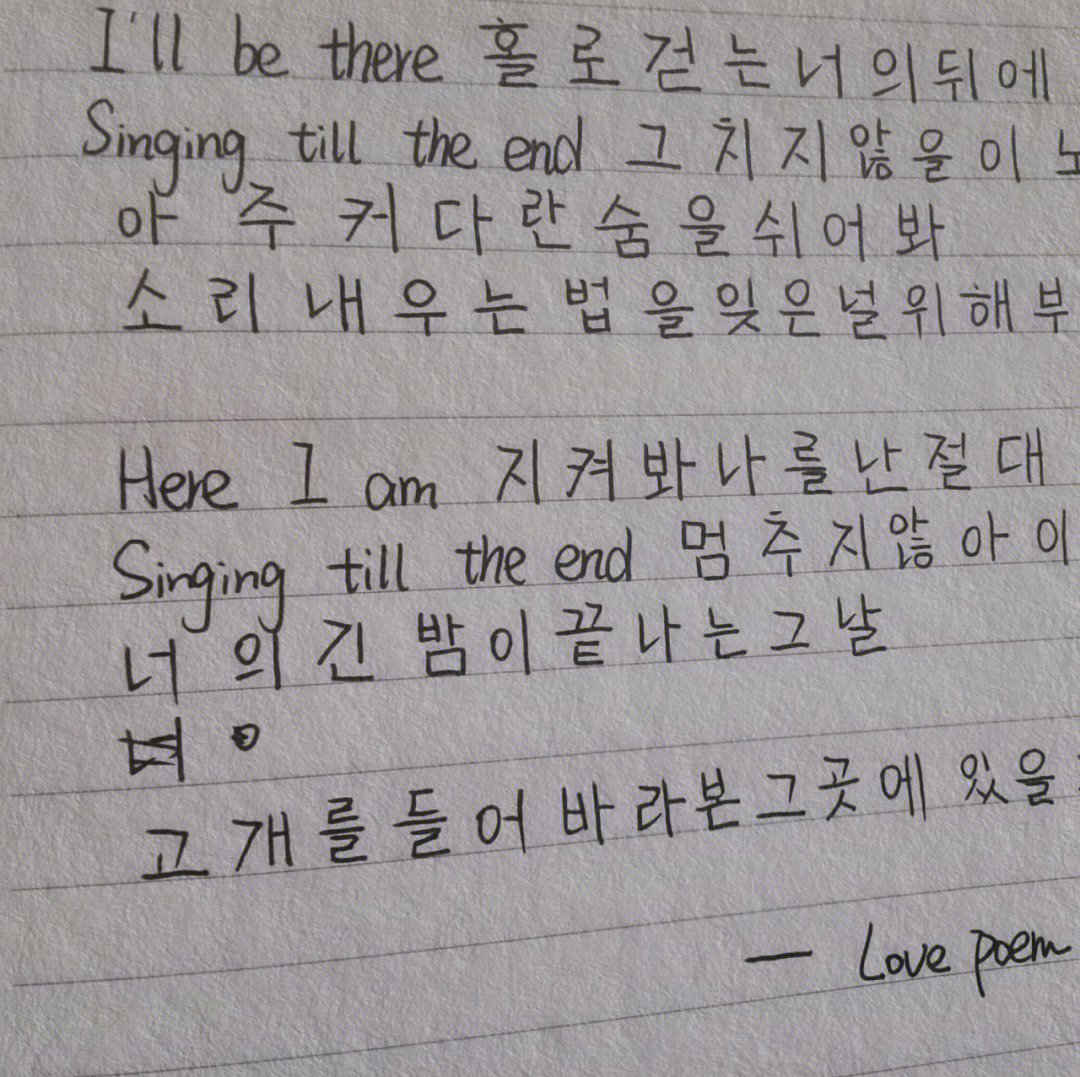 I'll be there 홀로 걷는 너의 뒤에
Singing till the end 그치지 않을 이
아주 커다란 숨을 쉬어 봐
소리 내 우는 법을 잊은 널 위해 부
Here I am 지켜봐 나를 난 절대
Singing till the end 멈추지 않아 이
너의 긴 밤이 끝나는 그날
고개를 들어 바라본 그곳에 있을
— Love poem